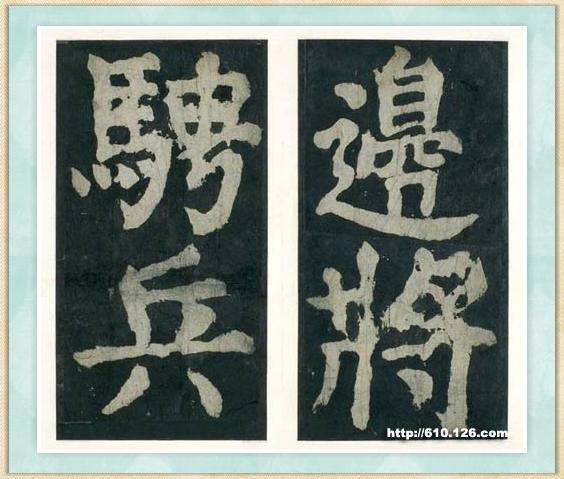 邊將
騁兵
http://610.126.com